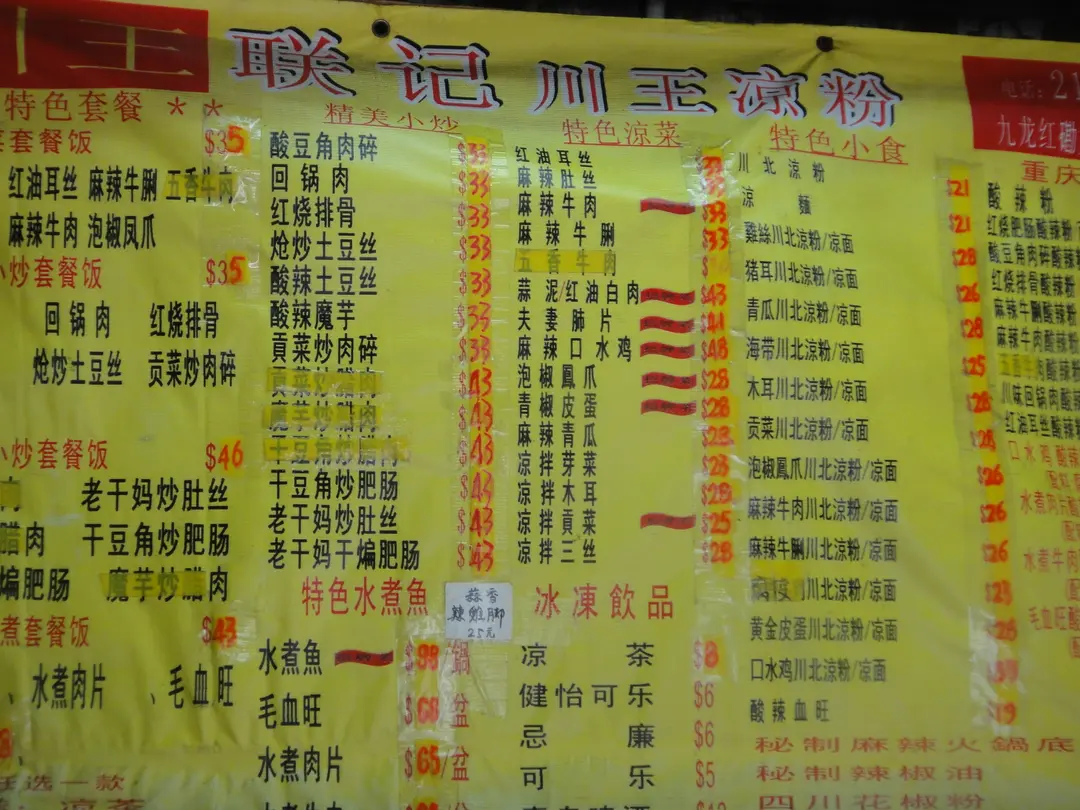 川王
联记川王凉粉
电话：21
九龙红磡
特色套餐 * *
套餐饭 $35
红油耳丝 麻辣牛䐁 五香牛肉
麻辣牛肉 泡椒凤爪
小炒套餐饭 $35
回锅肉 红烧排骨
炝炒土豆丝 贡菜炒肉碎
小炒套餐饭 $46
肉 老干妈炒肚丝
腊肉 干豆角炒肥肠
煸肥肠 魔芋炒腊肉
煮套餐饭 $43
、水煮肉片 、毛血旺
任选一款
凉茶
精美小炒
酸豆角肉碎 $33
回锅肉 $33
红烧排骨 $33
炝炒土豆丝 $33
酸辣土豆丝 $33
酸辣魔芋 $33
貢菜炒肉碎 $33
贡菜炒腊肉 $43
魔芋炒腊肉 $43
干豆角炒腊肉 $43
干豆角炒肥肠 $43
老干妈炒肚丝 $43
老干妈干煸肥肠 $43
特色水煮魚
水煮魚 $98/鍋
毛血旺 $68/盆
水煮肉片 $65/盆
蒜香
辣雞脚
25元
特色凉菜
红油耳丝 $33
麻辣肚丝
麻辣牛肉 $33
麻辣牛䐁 $33
五香牛肉
蒜泥/红油白肉 $43
夫妻肺片 $41
麻辣口水鸡 $48
泡椒鳳爪 $28
青椒皮蛋 $28
麻辣青瓜 $28
凉拌芽菜 $23
凉拌木耳 $28
凉拌貢菜 $25
凉拌三丝 $28
冰凍飲品
凉茶 $8
健怡可乐 $6
忌廉 $6
可乐 $5
特色小食
川北涼粉 $21
涼麵 $21
雞絲川北涼粉/凉面 $28
猪耳川北涼粉/凉面 $26
青瓜川北涼粉/凉面 $28
海带川北涼粉/凉面 $25
木耳川北涼粉/凉面 $28
贡菜川北涼粉/凉面 $28
泡椒鳳爪川北涼粉/凉面 $26
麻辣牛肉川北涼粉/凉面 $26
麻辣牛䐁川北涼粉/凉面 $26
川北涼粉/凉面 $23
黄金皮蛋川北涼粉/凉面 $28
口水鸡川北涼粉/凉面
酸辣血旺 $19
秘制麻辣火鍋底
秘制辣椒油
四川花椒粉
重庆
酸辣粉
红烧肥肠酸辣粉
酸豆角肉碎酸辣
红烧排骨酸辣粉
麻辣牛䐁酸辣粉
麻辣牛肉酸辣粉
五香牛肉酸辣粉
川味回锅肉酸辣
红油耳丝酸辣粉
口水鸡酸辣
水煮肉片酸
水煮牛肉
毛血旺酸